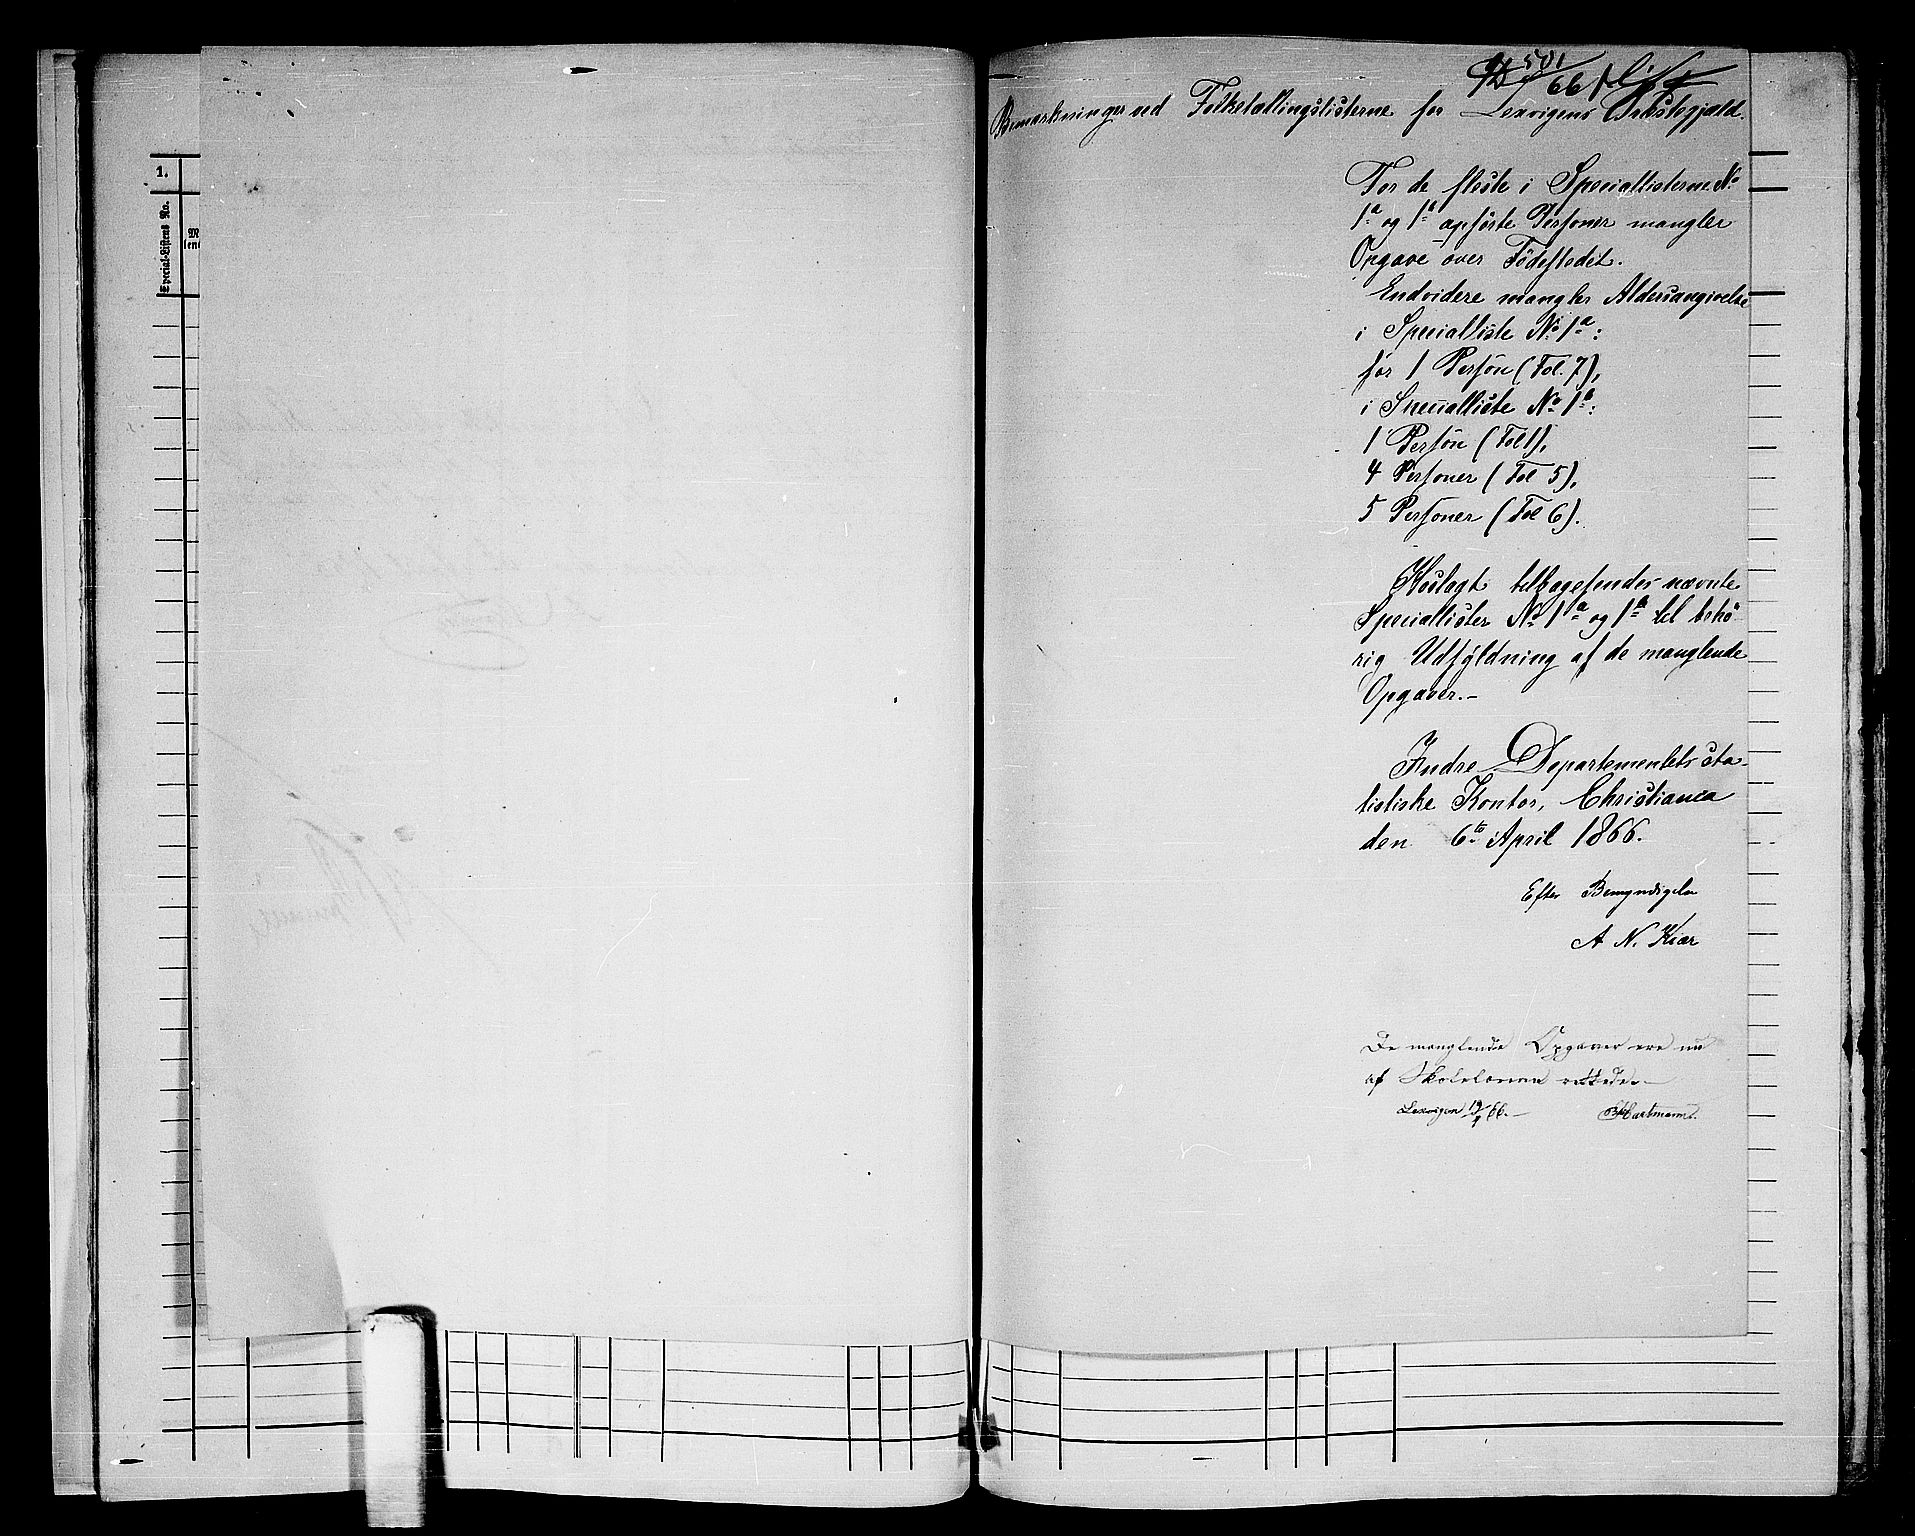 1.
Special-Listens No.
501
66
Bemærkninger ved Folketællingslisterne for Lexvigens Præstegjæld.
For de fleste i Speciallisterne No
1a og 1b opførte Personer mangler
Opgave over Fødestedet.
Endvidere mangler Aldersangivelse
i Specialliste No 1a:
for 1 Person (Fol. 7),
i Specialliste No 1b:
1 Person (Fol 1),
4 Personer (Fol 5),
5 Personer (Fol 6).
Hoslagt tilbagesendes nævnte
Speciallister No 1a og 1b til behø-
rig Udfyldning af de manglende
Opgaver.-
Indre Departementets sta-
tistiske Kontor, Christiania
den 6te April 1866.
Efter Bemyndigelse
A N. Kiær
De manglende Opgaver ere nu
af Skolelærerne rettede.-
Lexvigen 19/4 66.- Hartmann.